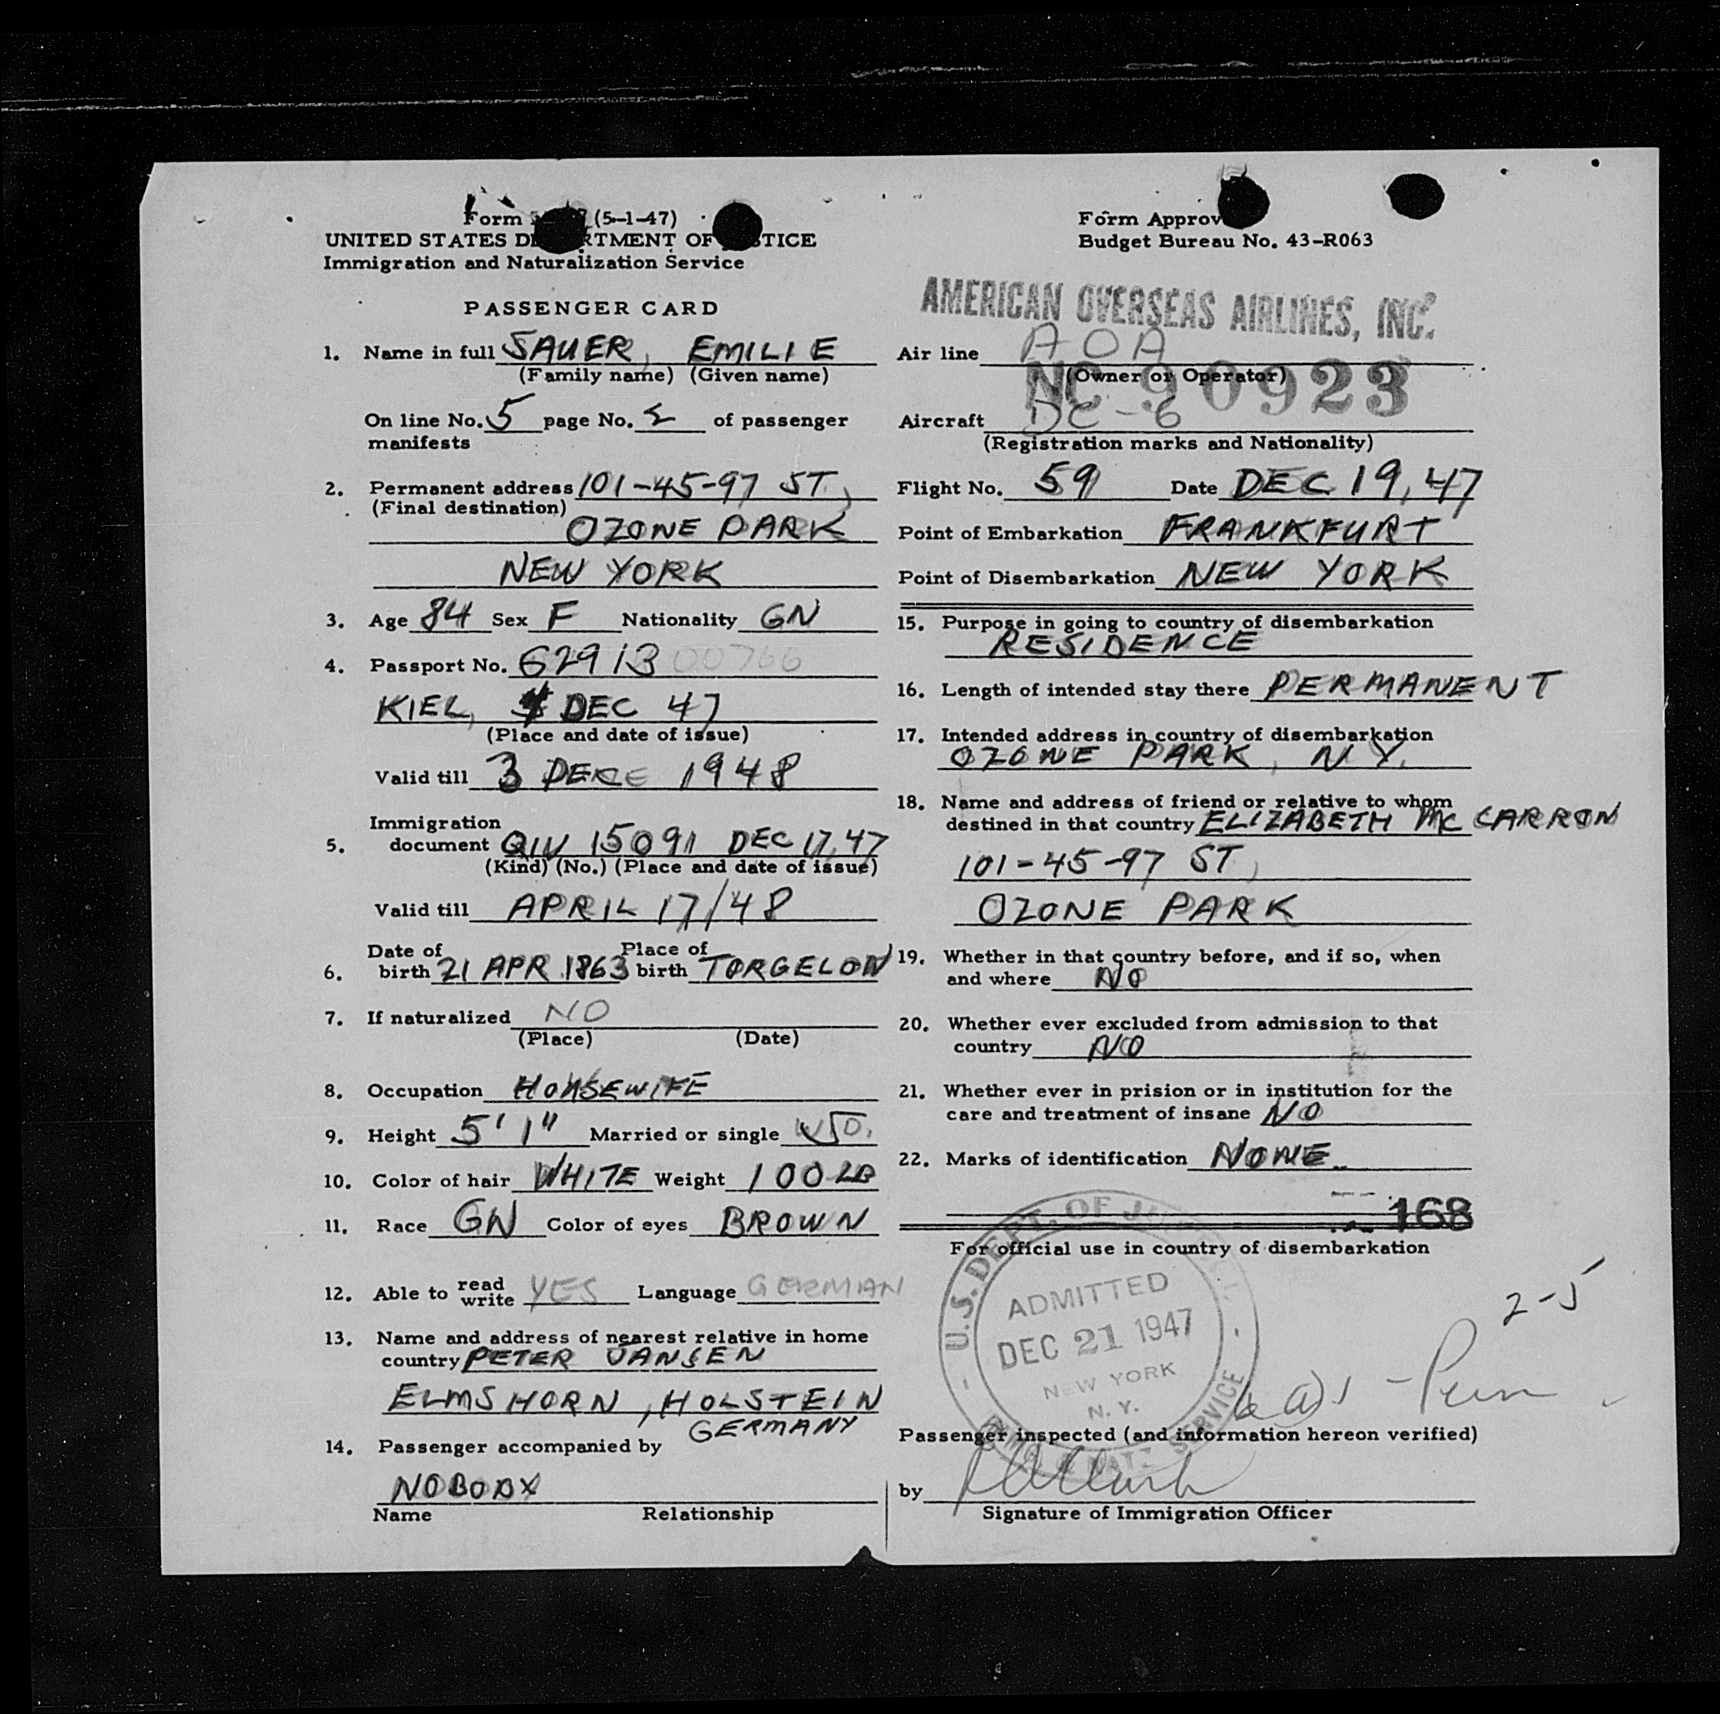 Form (5-1-47)
UNITED STATES DEPARTMENT OF JUSTICE
Immigration and Naturalization Service
PASSENGER CARD
1. Name in full SAUER, EMILIE
(Family name) (Given name)
On line No. 5 page No. 2 of passenger
manifests
2. Permanent address 101-45-97 ST,
(Final destination)
OZONE PARK
NEW YORK
3. Age 84 Sex F Nationality GN
4. Passport No. 62913 00766
KIEL, 4 DEC 47
(Place and date of issue)
Valid till 3 DEC 1948
Immigration
5. document QIV 15091 DEC 17, 47
(Kind) (No.) (Place and date of issue)
Valid till APRIL 17/48
Date of Place of
6. birth 21 APR 1863 birth TORGELOW
7. If naturalized NO
(Place) (Date)
8. Occupation HOUSEWIFE
9. Height 5' 1" Married or single WD.
10. Color of hair WHITE Weight 100 LB
11. Race GN Color of eyes BROWN
12. Able to read write YES Language GERMAN
13. Name and address of nearest relative in home
country PETER JANSEN
ELMSHORN, HOLSTEIN
GERMANY
14. Passenger accompanied by
NOBODY
Name Relationship
Form Approv
Budget Bureau No. 43-R063
AMERICAN OVERSEAS AIRLINES, INC.
Air line AOA
(Owner or Operator)
NC 90923
Aircraft DC-6
(Registration marks and Nationality)
Flight No. 59 Date DEC 19, 47
Point of Embarkation FRANKFURT
Point of Disembarkation NEW YORK
15. Purpose in going to country of disembarkation
RESIDENCE
16. Length of intended stay there PERMANENT
17. Intended address in country of disembarkation
OZONE PARK, N.Y.
18. Name and address of friend or relative to whom
destined in that country ELIZABETH MC CARRON
101-45-97 ST,
OZONE PARK
19. Whether in that country before, and if so, when
and where NO
20. Whether ever excluded from admission to that
country NO
21. Whether ever in prision or in institution for the
care and treatment of insane NO
22. Marks of identification NONE
168
For official use in country of disembarkation
U.S. DEPT. OF JUSTICE
ADMITTED
DEC 21 1947
NEW YORK
N. Y.
IMMG. & NATZ. SERVICE
2-5
Passenger inspected (and information hereon verified)
by
Signature of Immigration Officer